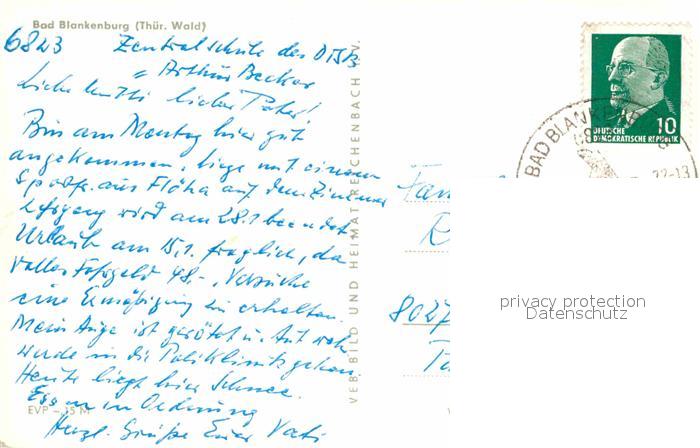 Bad Blankenburg (Thür. Wald)
6823 Zentralschule des DTSB
"Arthur Becker
Liebe Mutti lieber Peter!
Bin am Montag hier gut
angekommen, liege mit einem
Sportfr. aus Flöha auf dem Zimmer
Lehrgang wird am 28.1 beendet.
Urlaub am 15,1. fraglich, da
volles Fahrgeld 48,-, Versuche
eine Ermäßigung zu erhalten.
Mein Auge ist gerötet u.
wurde in die Poliklinik gehen.
Heute liegt hier Schnee.
Essen in Ordnung
Herzl. Grüße Euer Vati
EVP – 15 M
VEB BILD UND HEIMAT REICHENBACH I. V.
10
DEUTSCHE
DEMOKRATISCHE REPUBLIK
BAD BLANKENB
22-13
Fam
R
8027
privacy protection
Datenschutz